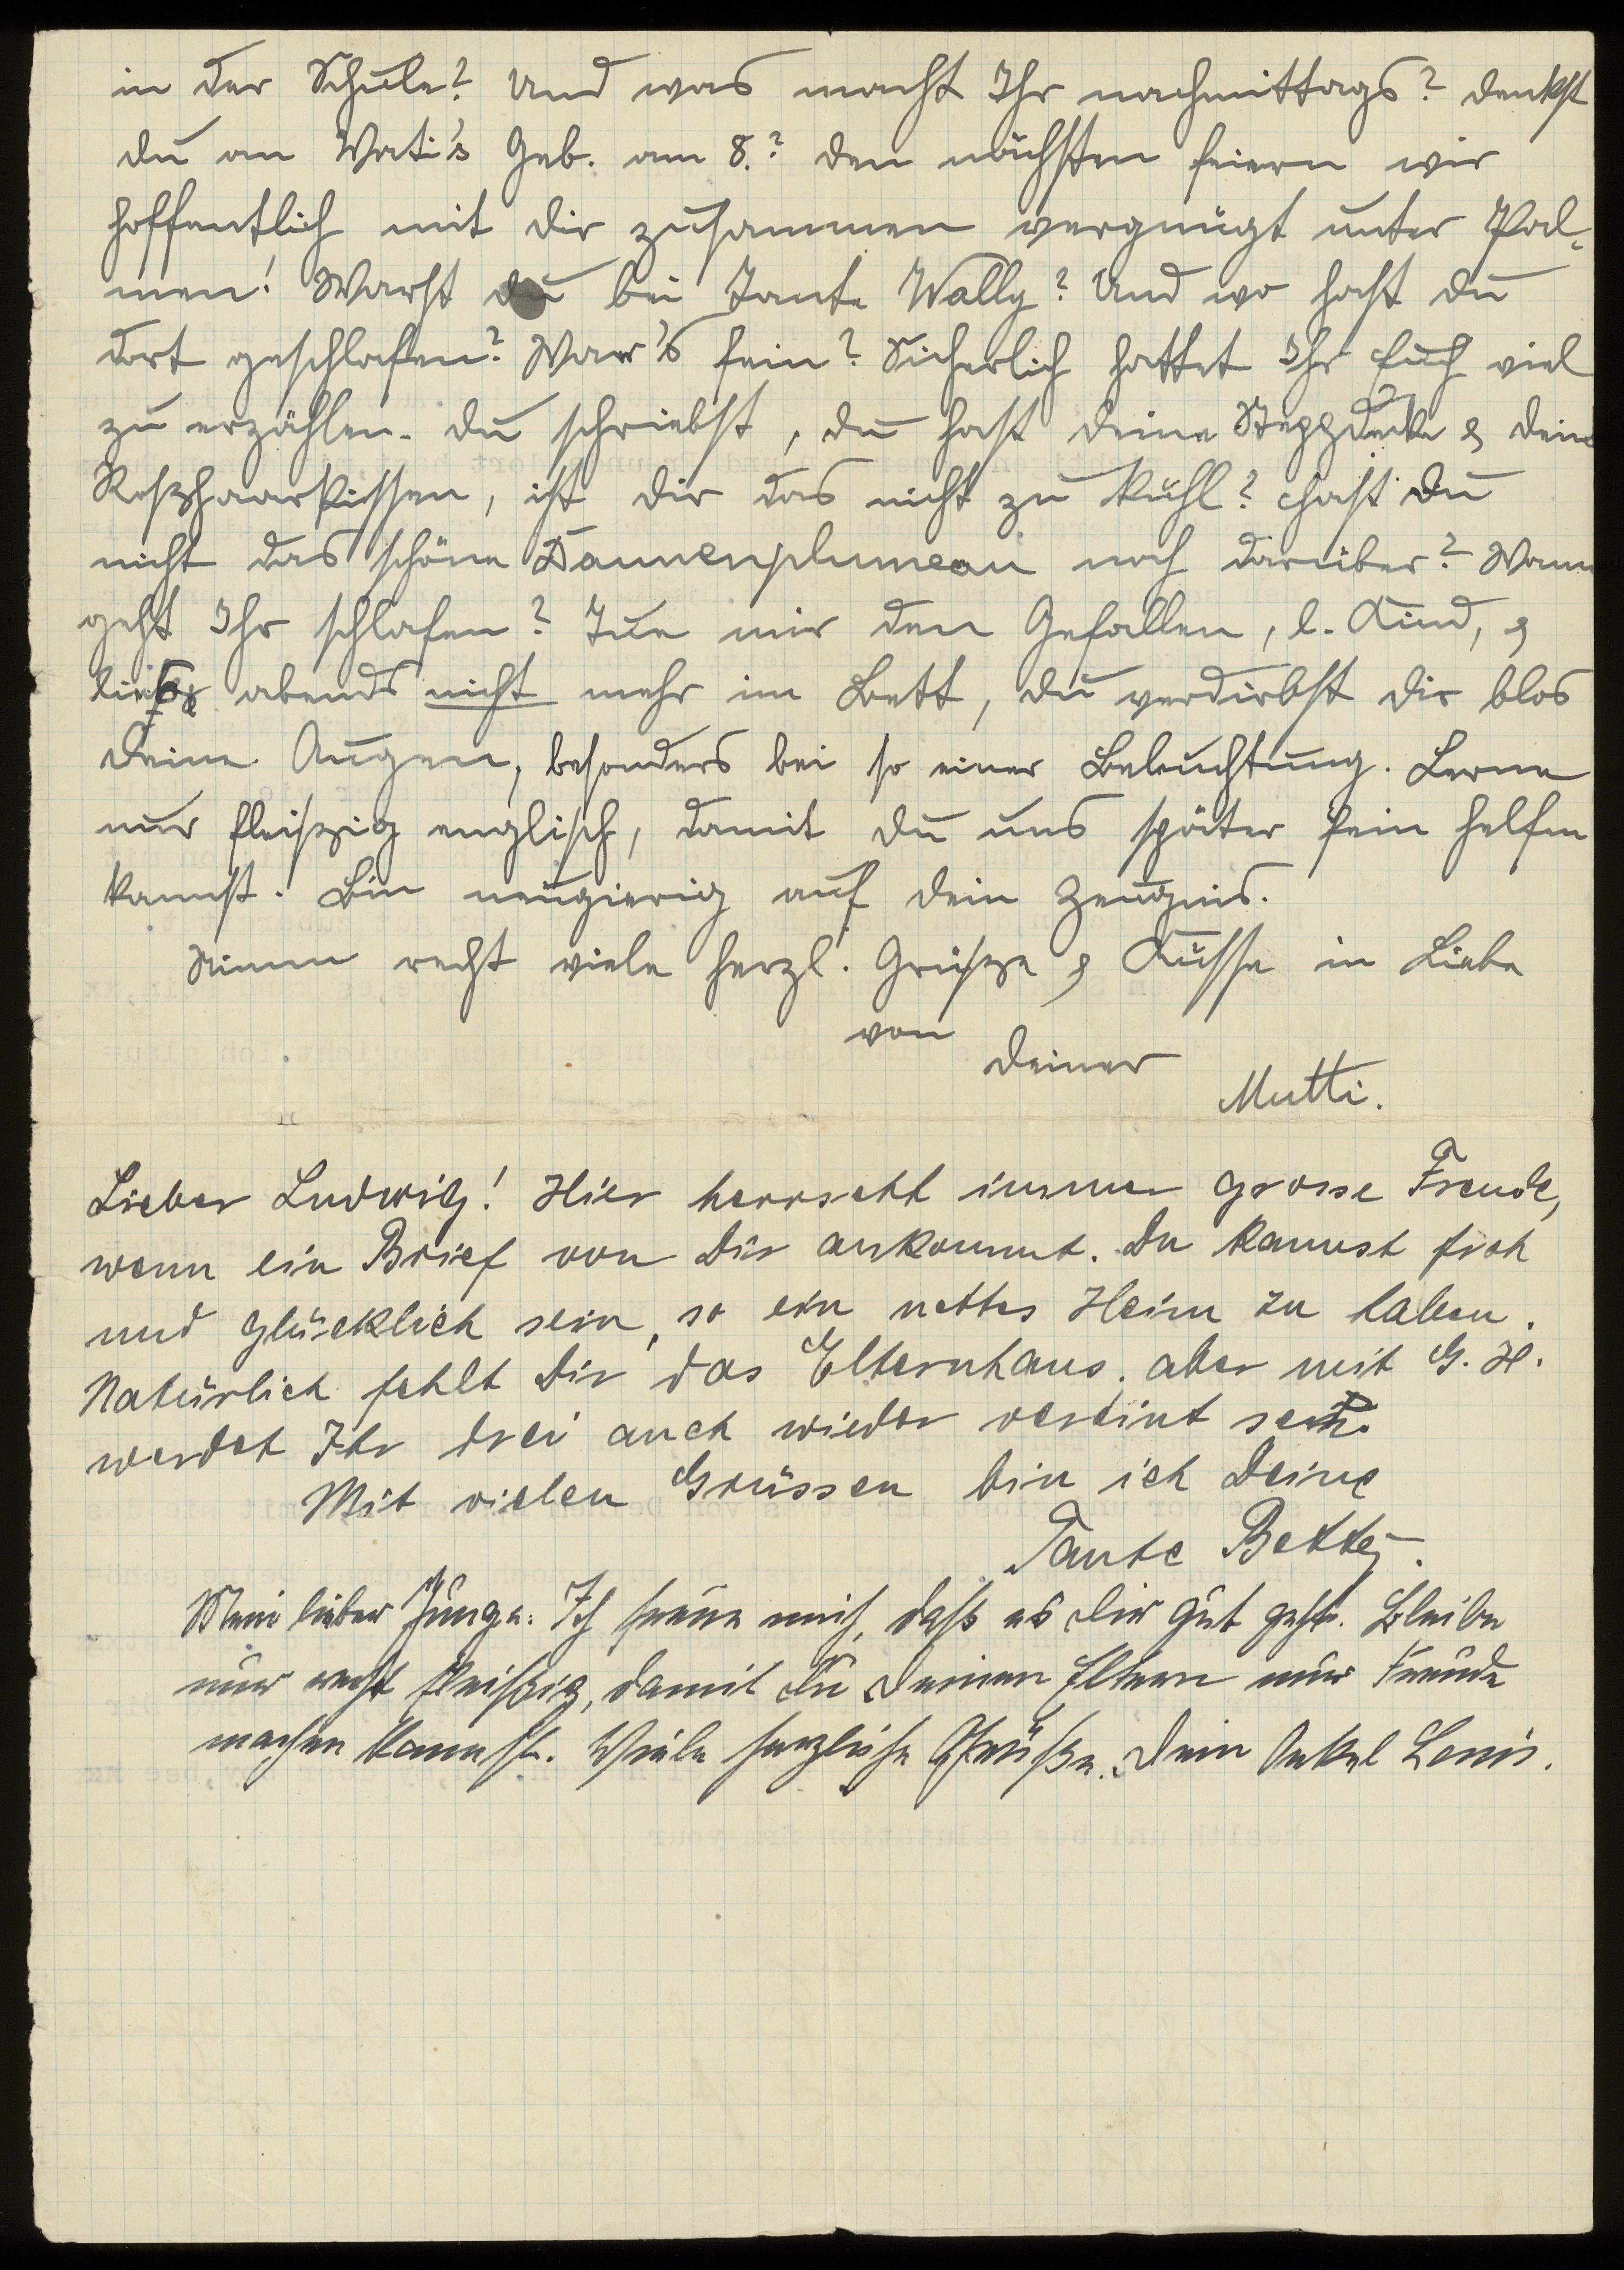 in der Schule? Und was macht Ihr nachmittags? Denkst
Du an Vati's Geb. am 8.? Den nächsten feiern wir
hoffentlich mit Dir zusammen vergnügt unter Pal-
men! Warst Du bei Tante Wally? Und wo hast Du
dort geschlafen? War's fein? Sicherlich hattet Ihr Euch viel
zu erzählen. Du schriebst, Du hast Deine Steppdecke & Dein
Roßhaarkissen, ist Dir das nicht zu kühl? Hast Du
nicht das schöne Daunenplumeau noch darüber? Wann
geht Ihr schlafen? Tue mir den Gefallen, l. Kind, &
lies abends nicht mehr im Bett, Du verdirbst Dir blos
Deine Augen, besonders bei so einer Beleuchtung. Lerne
nur fleißig englisch, damit Du uns später fein helfen
kannst. Bin neugierig auf Dein Zeugnis.
Nimm recht viele herzl. Grüße & Küsse in Liebe
von
Deiner
Mutti.
Lieber Ludwig! Hier herrscht immer grosse Freude,
wenn ein Brief von Dir ankommt. Du kannst froh
und glücklich sein, so ein nettes Heim zu haben.
Natürlich fehlt Dir das Elternhaus, aber mit G. H.
werdet Ihr drei auch wieder vereint sein.
Mit vielen Grüssen bin ich Deine
Tante Betty.
Mein lieber Junge: Ich freue mich, daß es Dir gut geht. Bleibe
nur recht fleißig, damit Du Deinen Eltern nur Freude
machen kannst. Viele herzliche Grüße. Dein Onkel Louis.